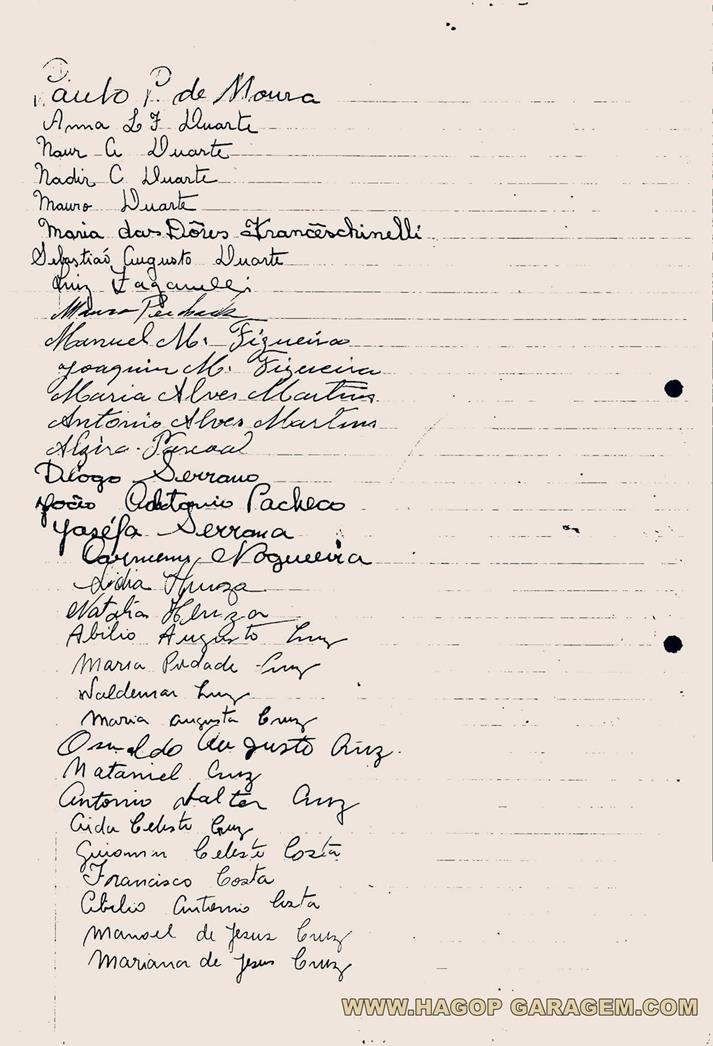 Paulo P. de Moura
Anna L F Duarte
Naur A Duarte
Nadir C Duarte
Mauro Duarte
Maria das Dôres Francêschinelli
Sebastião Augusto Duarte
Luiz Zaganelli
Mauro
Manuel M. Figueira
Joaquim M. Figueira
Maria Alves Martins
Antonio Alves Martins
Alzira Pascoal
Diogo Serrano
João Antonio Pacheco
Joséfa Serrana
Carmem Nogueira
Lidia
Natalia
Abilio Augusto Cruz
Maria Piedade Cruz
Waldemar Cruz
Maria Augusta Cruz
Osvaldo Augusto Cruz.
Nataniel Cruz
Antonio Valter Cruz
Aida Celeste Cruz
Guiomar Celeste Costa
Francisco Costa
Abilio Antonio Costa
Manoel de Jesus Cruz
Mariana de Jesus Cruz
WWW.HAGOP GARAGEM.COM